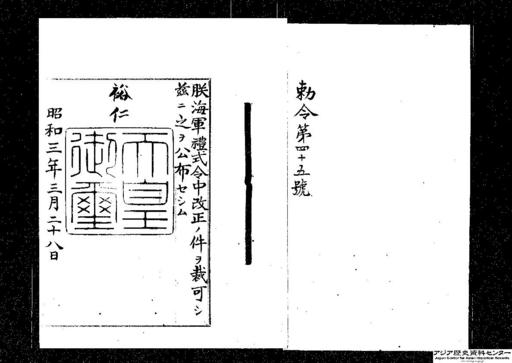 勅令第四十五號
朕海軍禮式令中改正ノ件ヲ裁可シ
玆ニ之ヲ公布セシム
裕仁
天皇
御璽
昭和三年三月二十八日
アジア歴史資料センター
Japan Center for Asian Historical Records